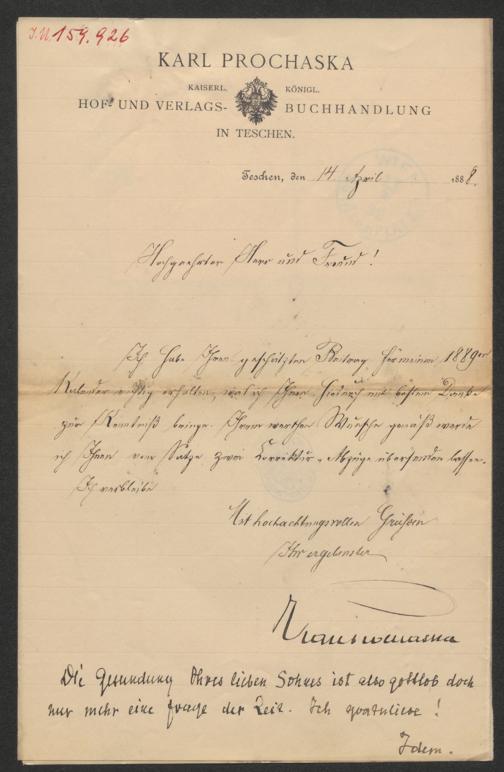 J.N. 159.926
KARL PROCHASKA
KAISERL. KÖNIGL.
HOF- UND VERLAGS- BUCHHANDLUNG
IN TESCHEN.
Teschen, den 14 April 1888.
Hochgeehrter Herr und Freund!
Ich habe Ihren geschätzten Beitrag für meinen 1889er
Kalender richtig erhalten, was ich Ihnen hiedurch mit bestem Danke
zur Kenntniß bringe. Ihrem werthen Wunsche gemäß werde
ich Ihnen vom Satze zwei Correktur-Abzüge übersenden lassen.
Ich verbleibe
Mit hochachtungsvollen Grüßen
Ihr ergebenster
Prochaska
Die Gesundung Ihres lieben Sohnes ist also gottlob doch
nur mehr eine Frage der Zeit. Ich gratuliere!
Idem.